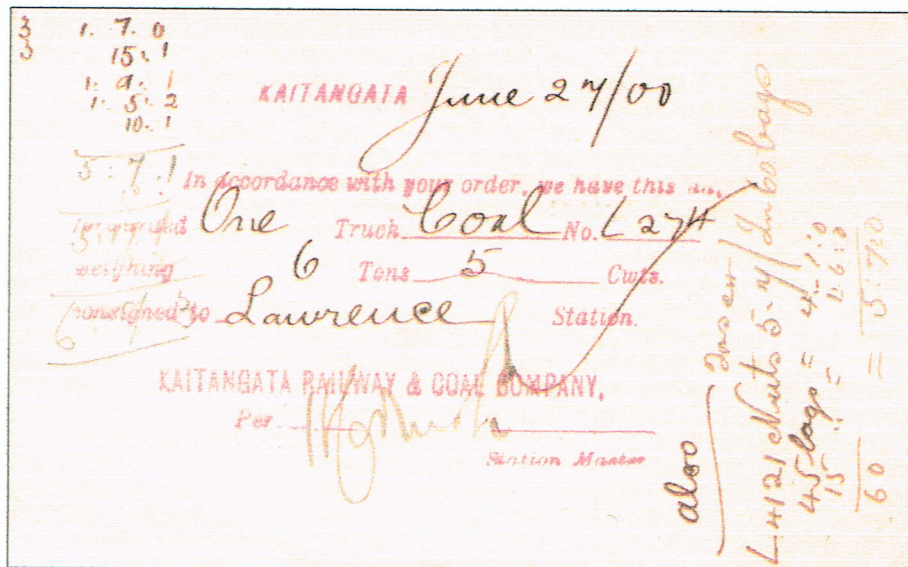 3 1. 7. 0
3 15. 1
1. 9. 1
1. 5. 2
10. 1
5 : 7. 1
KAITANGATA June 27/00
In accordance with your order, we have this day
forwarded One Truck Coal No. L 274
weighing 6 Tons 5 Cwts.
consigned to Lawrence Station.
KAITANGATA RAILWAY & COAL COMPANY,
Per
Station Master
also
L 4121 Nuts 5.7 / In 60 bags
45 bags = 4. 1. 0
15 " = 1. 6. 0
60 = 5. 7. 0